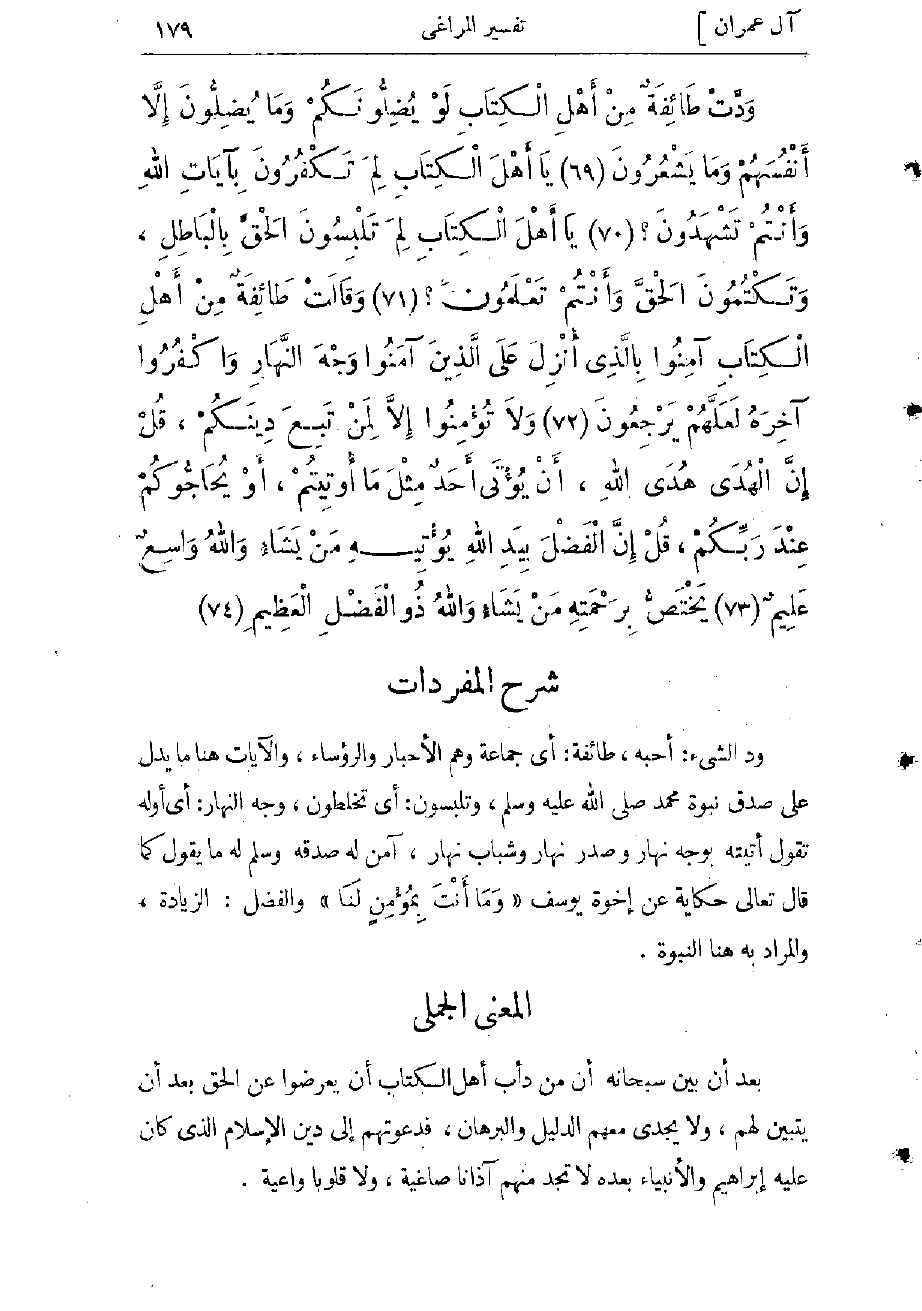 آل عمران ] تفسير المراغى ١٧٩
وَدَّتْ طَائِفَةٌ مِنْ أَهْلِ الْكِتَابِ لَوْ يُضِلُّونَكُمْ وَمَا يُضِلُّونَ إِلَّا
أَنْفُسَهُمْ وَمَا يَشْعُرُونَ (٦٩) يَا أَهْلَ الْكِتَابِ لِمَ تَكْفُرُونَ بِآيَاتِ اللهِ
وَأَنْتُمْ تَشْهَدُونَ ؟ (٧٠) يَا أَهْلَ الْكِتَابِ لِمَ تَلْبِسُونَ الْحَقَّ بِالْبَاطِلِ ،
وَتَكْتُمُونَ الْحَقَّ وَأَنْتُمْ تَعْلَمُونَ ؟ (٧١) وَقَالَتْ طَائِفَةٌ مِنْ أَهْلِ
الْكِتَابِ آمِنُوا بِالَّذِى أُنْزِلَ عَلَى الَّذِينَ آمَنُوا وَجْهَ النَّهَارِ وَاكْفُرُوا
آخِرَهُ لَعَلَّهُمْ يَرْجِعُونَ (٧٢) وَلَا تُؤْمِنُوا إِلاَّ لِمَنْ تَبِعَ دِينَكُمْ ، قُلْ
إِنَّ الْهُدَى هُدَى اللهِ ، أَنْ يُؤْتَى أَحَدٌ مِثْلَ مَا أُوتِيتُمْ ، أَوْ يُحَاجُّوكُمْ
عِنْدَ رَبِّكُمْ ، قُلْ إِنَّ الْفَضْلَ بِيَدِ اللهِ يُؤْتِيهِ مَنْ يَشَاءُ وَاللهُ وَاسِعٌ
عَلِيمٌ (٧٣) يَخْتَصُّ بِرَحْمَتِهِ مَنْ يَشَاءُ وَاللهُ ذُو الْفَضْلِ الْعَظِيمِ (٧٤)
شرح المفردات
ود الشىء : أحبه ، طائفة : أى جماعة وهم الأحبار والرؤساء ، والآيات هنا ما يدل
على صدق نبوة محمد صلى الله عليه وسلم ، وتلبسون : أى تخلطون ، وجه النهار : أى أوله
تقول أتيته بوجه نهار وصدر نهار وشباب نهار ، آمن له صدقه وسلم له ما يقول كما
قال تعالى حكاية عن إخوة يوسف « وَمَا أَنْتَ بِمُؤْمِنٍ لَنَا » والفضل : الزيادة ،
والمراد به هنا النبوة .
المعنى الجملى
بعد أن بين سبحانه أن من دأب أهل الكتاب أن يعرضوا عن الحق بعد أن
يتبين لهم ، ولا يجدى معهم الدليل والبرهان ، فدعوتهم إلى دين الإسلام الذى كان
عليه إبراهيم والأنبياء بعده لا تجد منهم آذانا صاغية ، ولا قلوبا واعية .